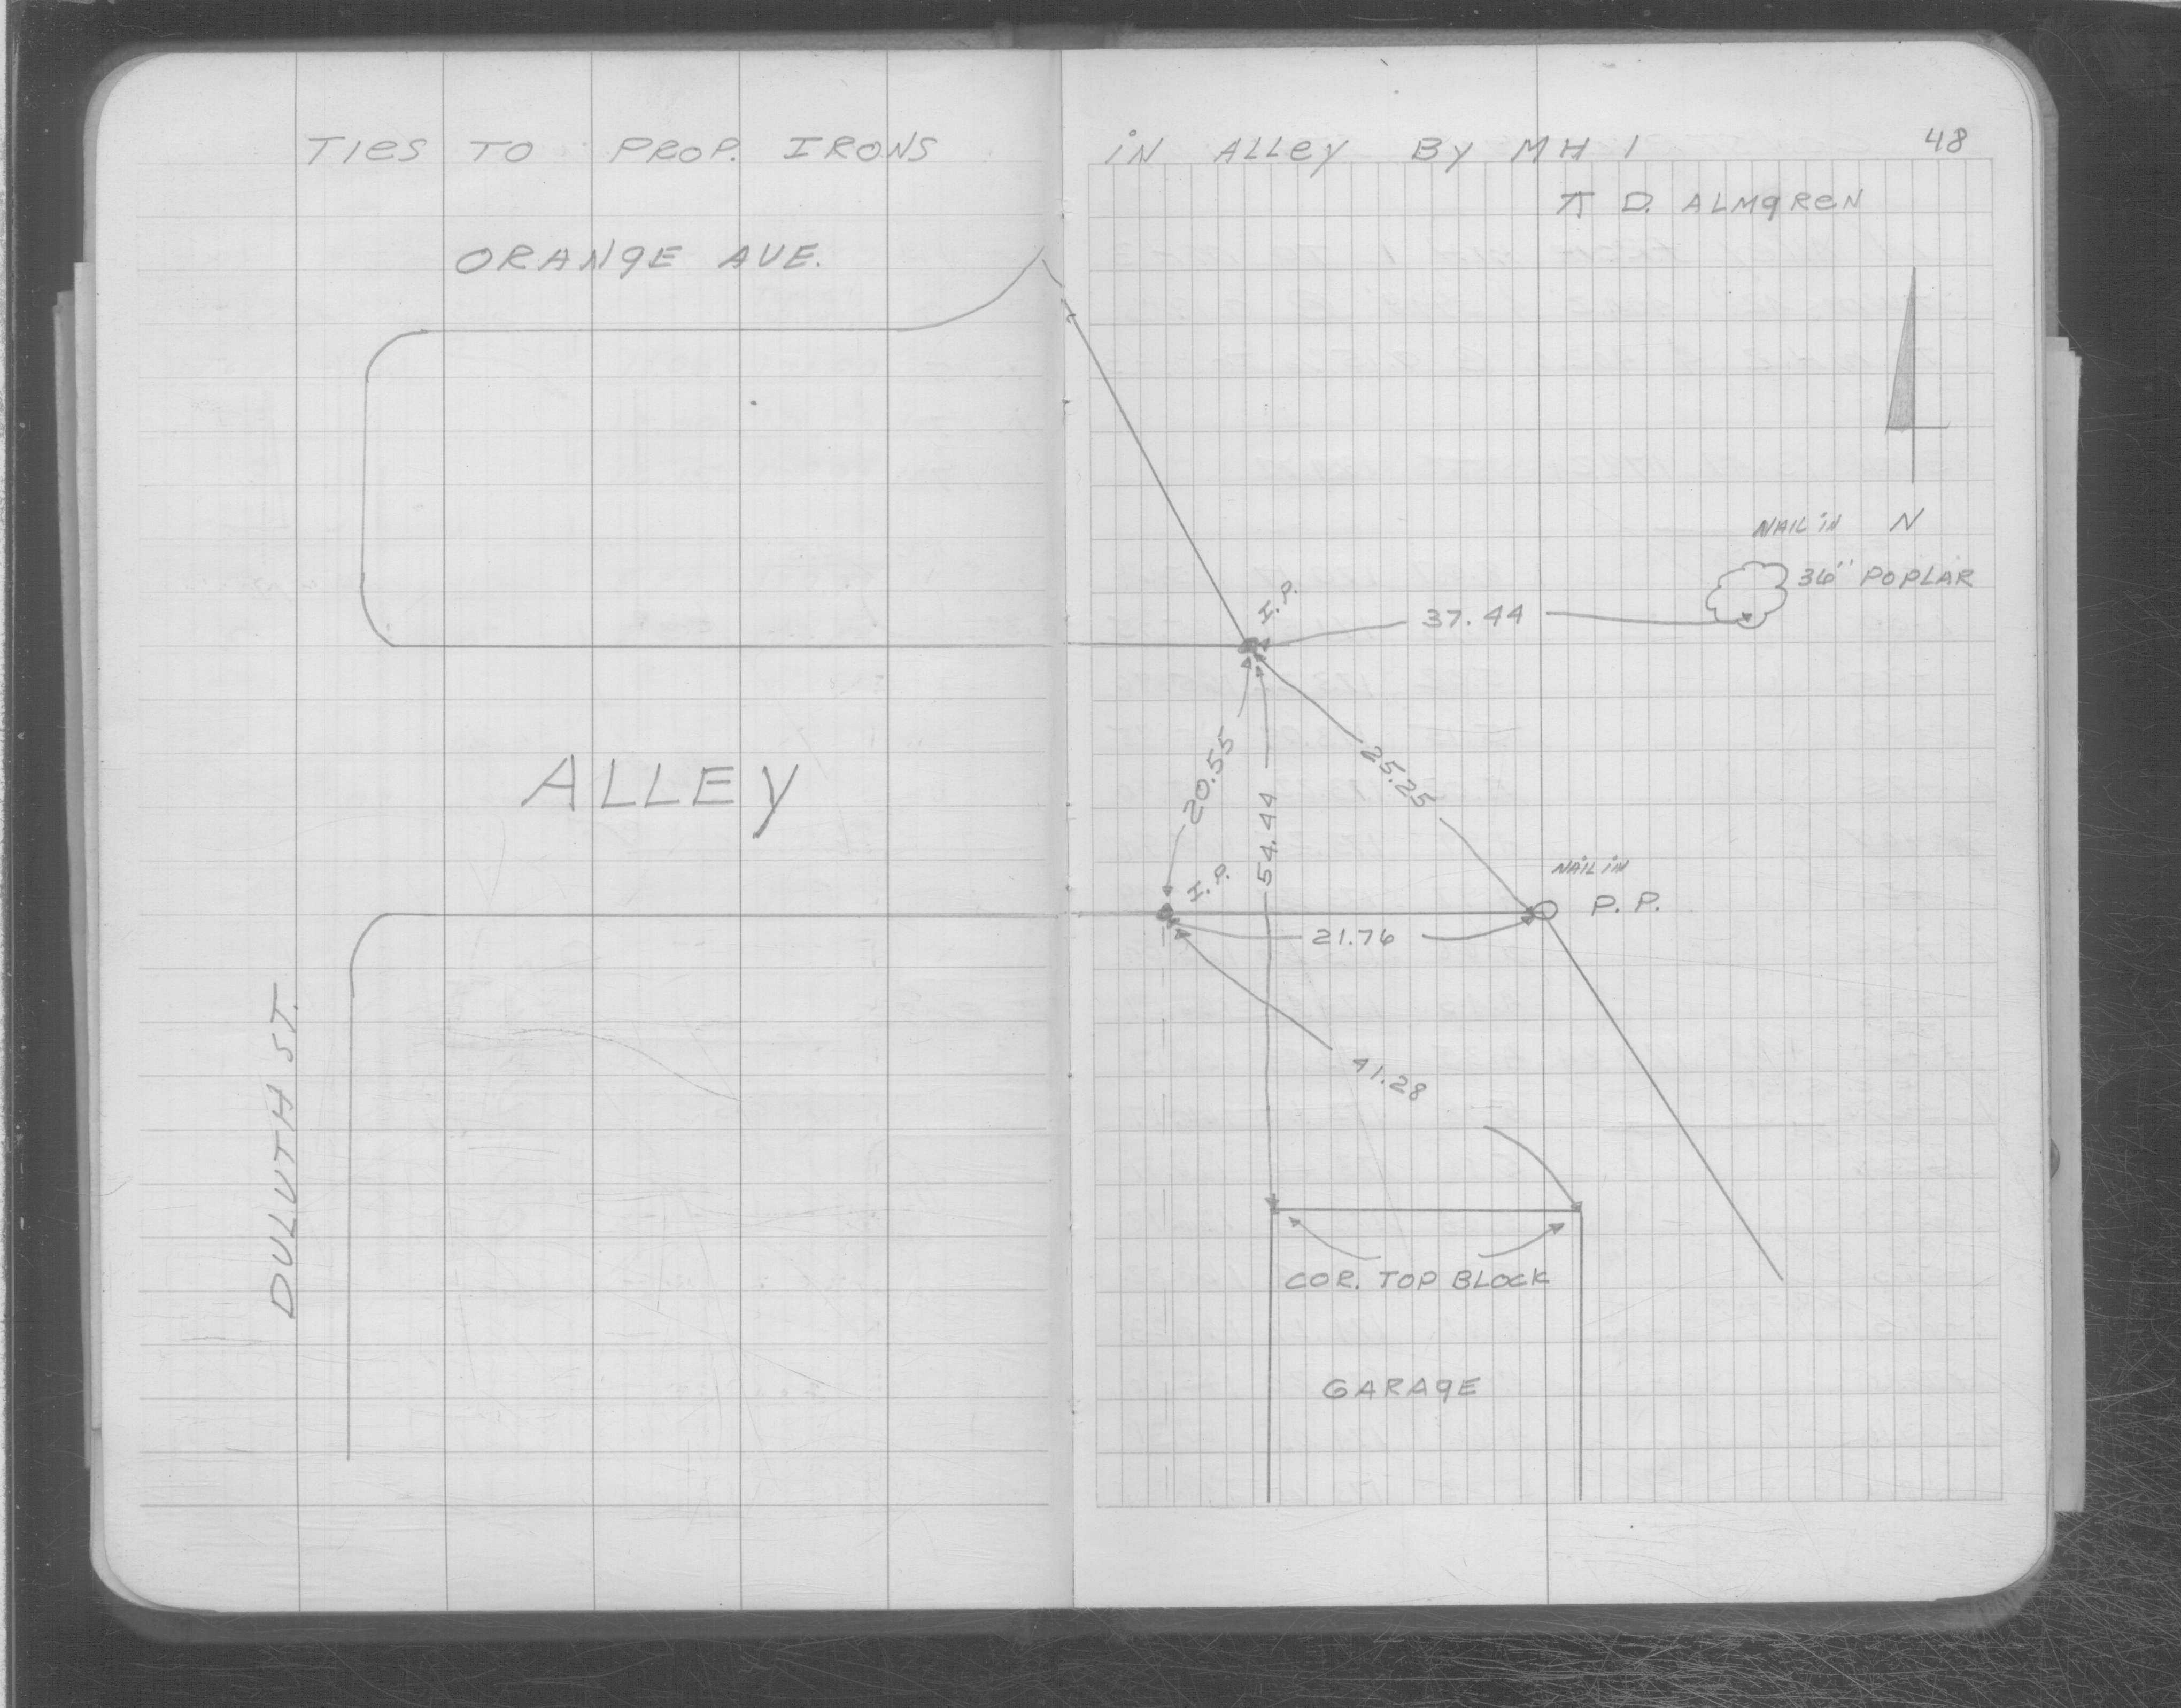 TIES TO PROP. IRONS IN ALLEY BY MH 1
48
π D. ALMGREN
ORANGE AVE.
N
NAIL IN
36" POPLAR
I.P.
37.44
20.55
54.44
25.25
ALLEY
I.P.
NAIL IN
P.P.
21.76
41.28
DULUTH ST.
COR. TOP BLOCK
GARAGE